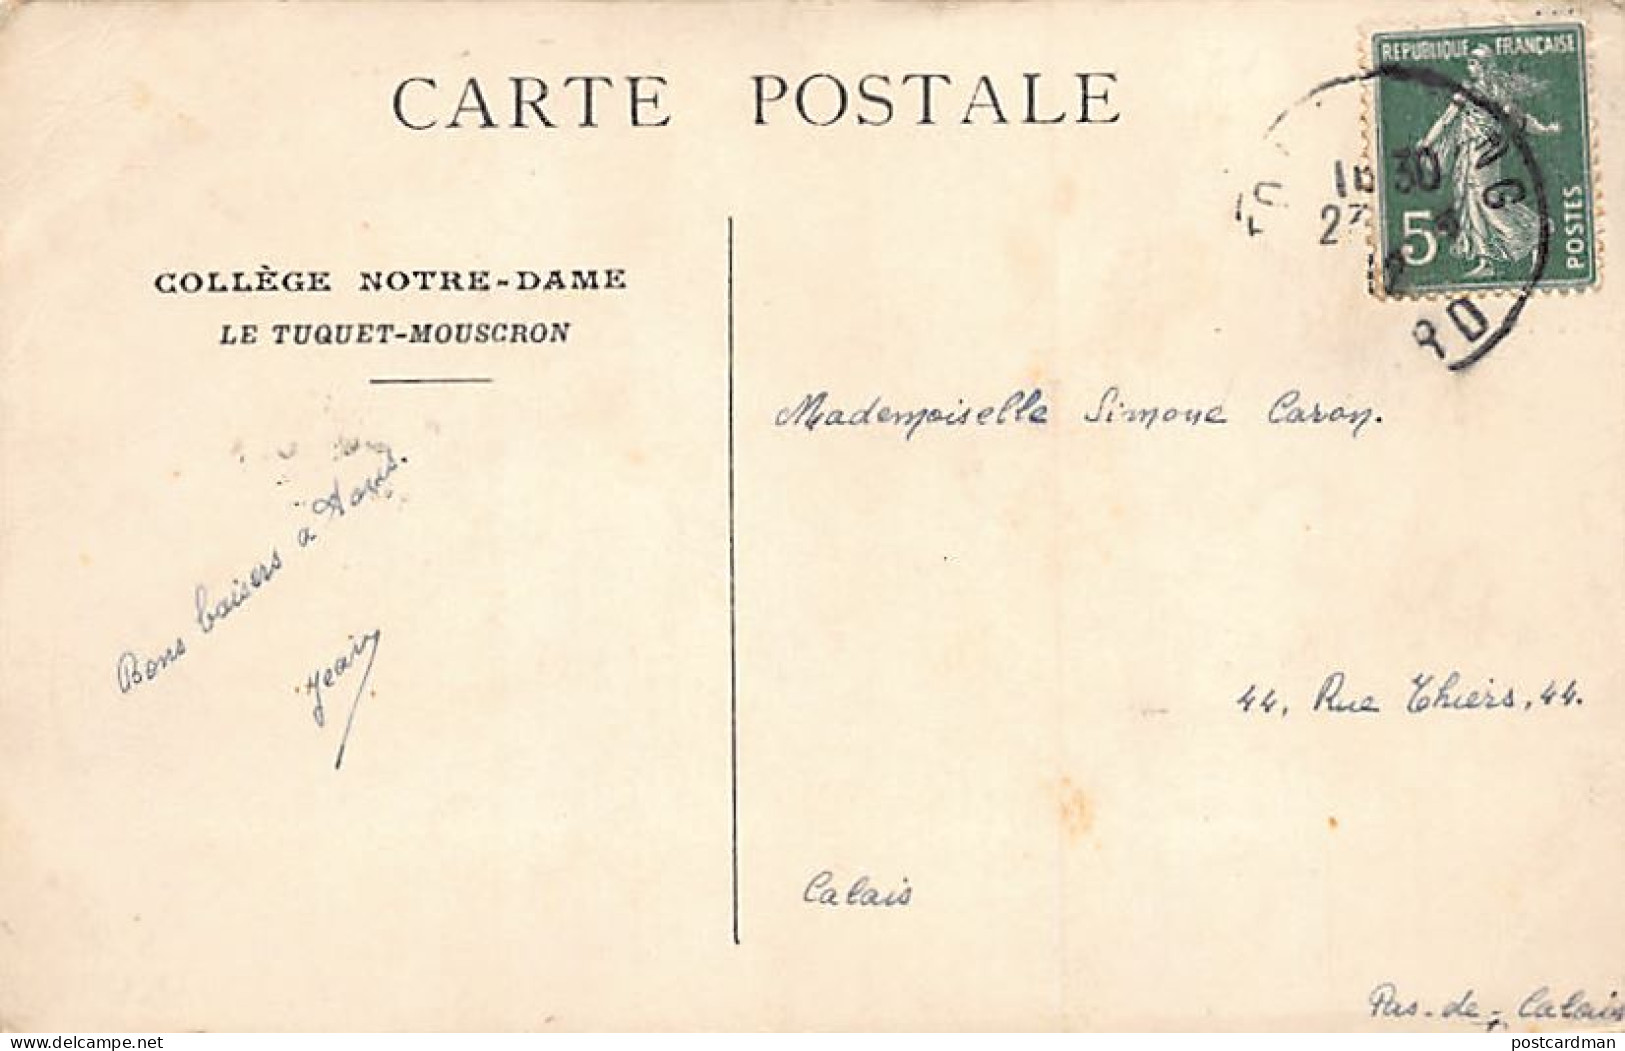 CARTE POSTALE
REPUBLIQUE FRANÇAISE
5
POSTES
16 30
27
12
RD
COLLÈGE NOTRE-DAME
LE TUQUET-MOUSCRON
Bons baisers a tous.
Jean
Mademoiselle Simone Caron.
44, Rue Thiers, 44.
Calais
Pas-de-Calais
postcardman